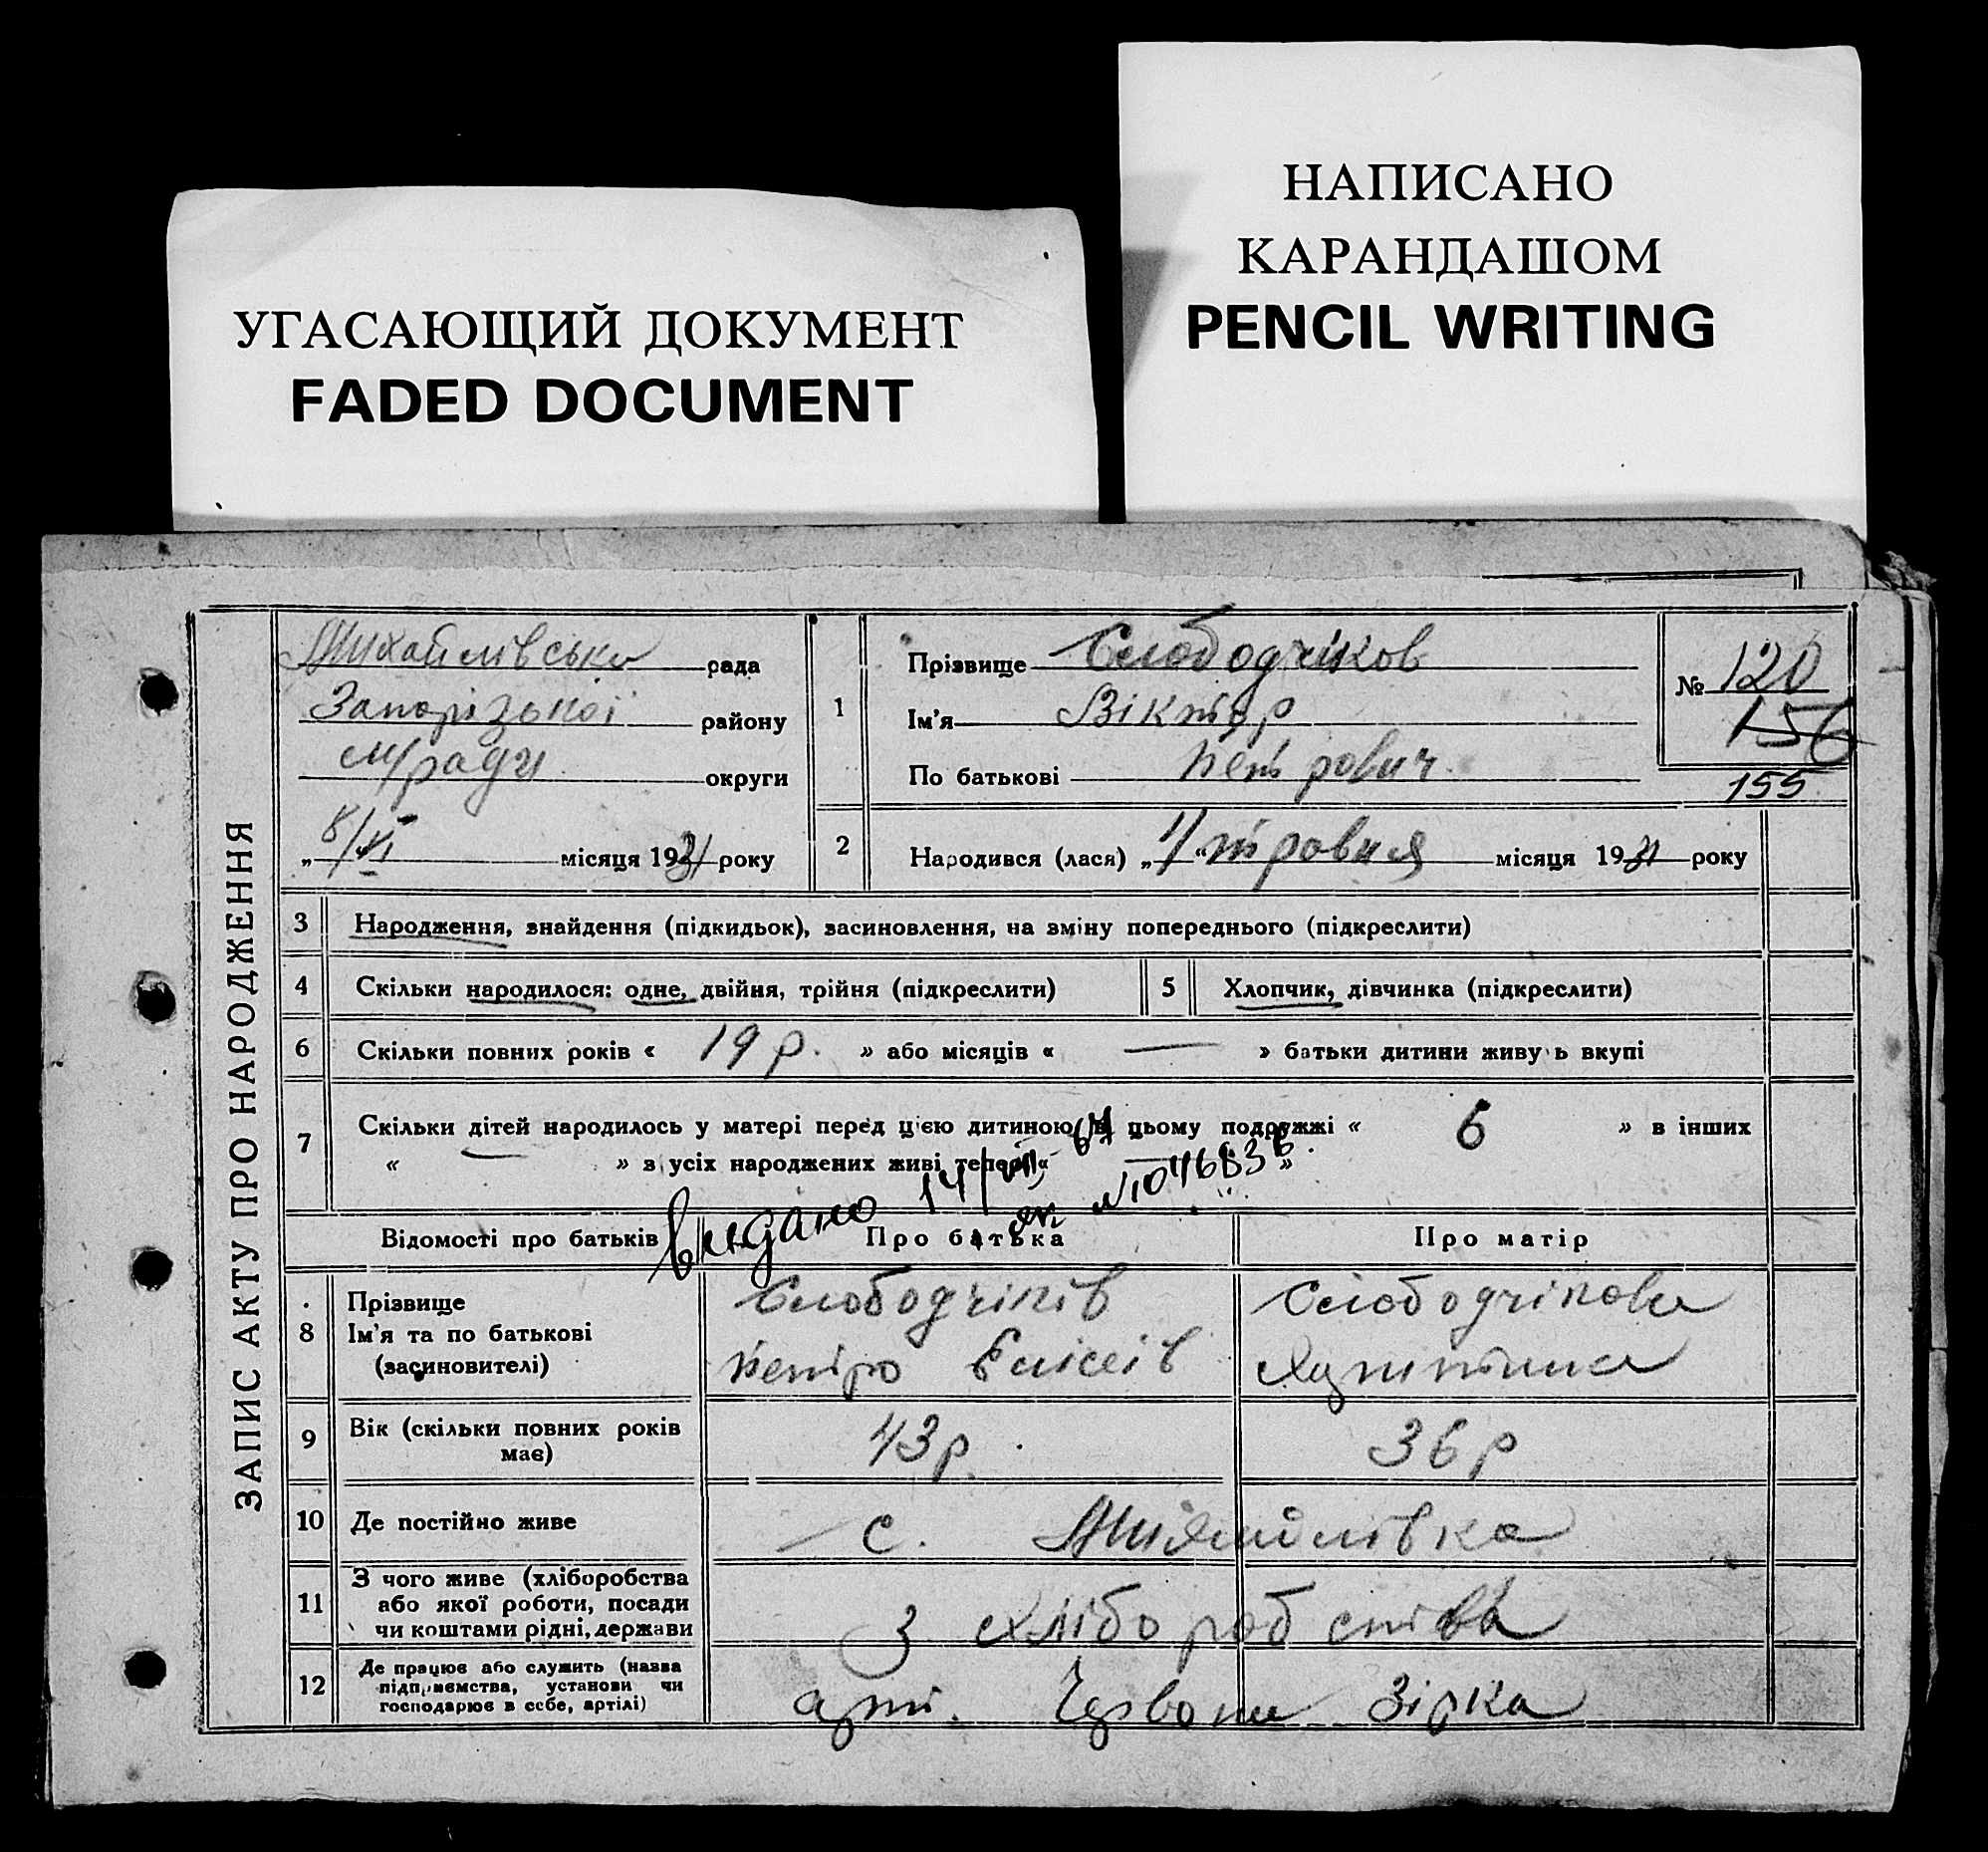 УГАСАЮЩИЙ ДОКУМЕНТ
FADED DOCUMENT
НАПИСАНО
КАРАНДАШОМ
PENCIL WRITING
ЗАПИС АКТУ ПРО НАРОДЖЕННЯ
Михайлівська рада
Запорізької району
м/ради округи
„ 8/VI місяця 1931 року
1
Прізвище Слободчіков
Ім'я Віктор
По батькові Петрович
№ 120
156
155
2
Народився (лася) „1" травня місяця 1931 року
3 Народження, знайдення (підкидьок), засиновлення, на зміну попереднього (підкреслити)
4 Скільки народилося: одне, двійня, трійня (підкреслити)
5 Хлопчик, дівчинка (підкреслити)
6 Скільки повних років « 19 р. » або місяців « — » батьки дитини живуть вкупі
7 Скільки дітей народилось у матері перед цією дитиною в цьому подружжі « 6 » в інших
« — » з усіх народжених живі тепер « — »
видано 14/VII
Відомості про батьків
Про батька
Про матір
8
Прізвище
Ім'я та по батькові
(засиновителі)
Слободчіків
Петро Єлісеів
Слободчікова
9 Вік (скільки повних років
має)
43 р.
36 р
10 Де постійно живе
с. Михайлівка
11
З чого живе (хліборобства
або якої роботи, посади
чи коштами рідні, держави
З хліборобства
12
Де працює або служить (назва
підприємства, установи чи
господарює в себе, артілі)
арт. Червона Зірка